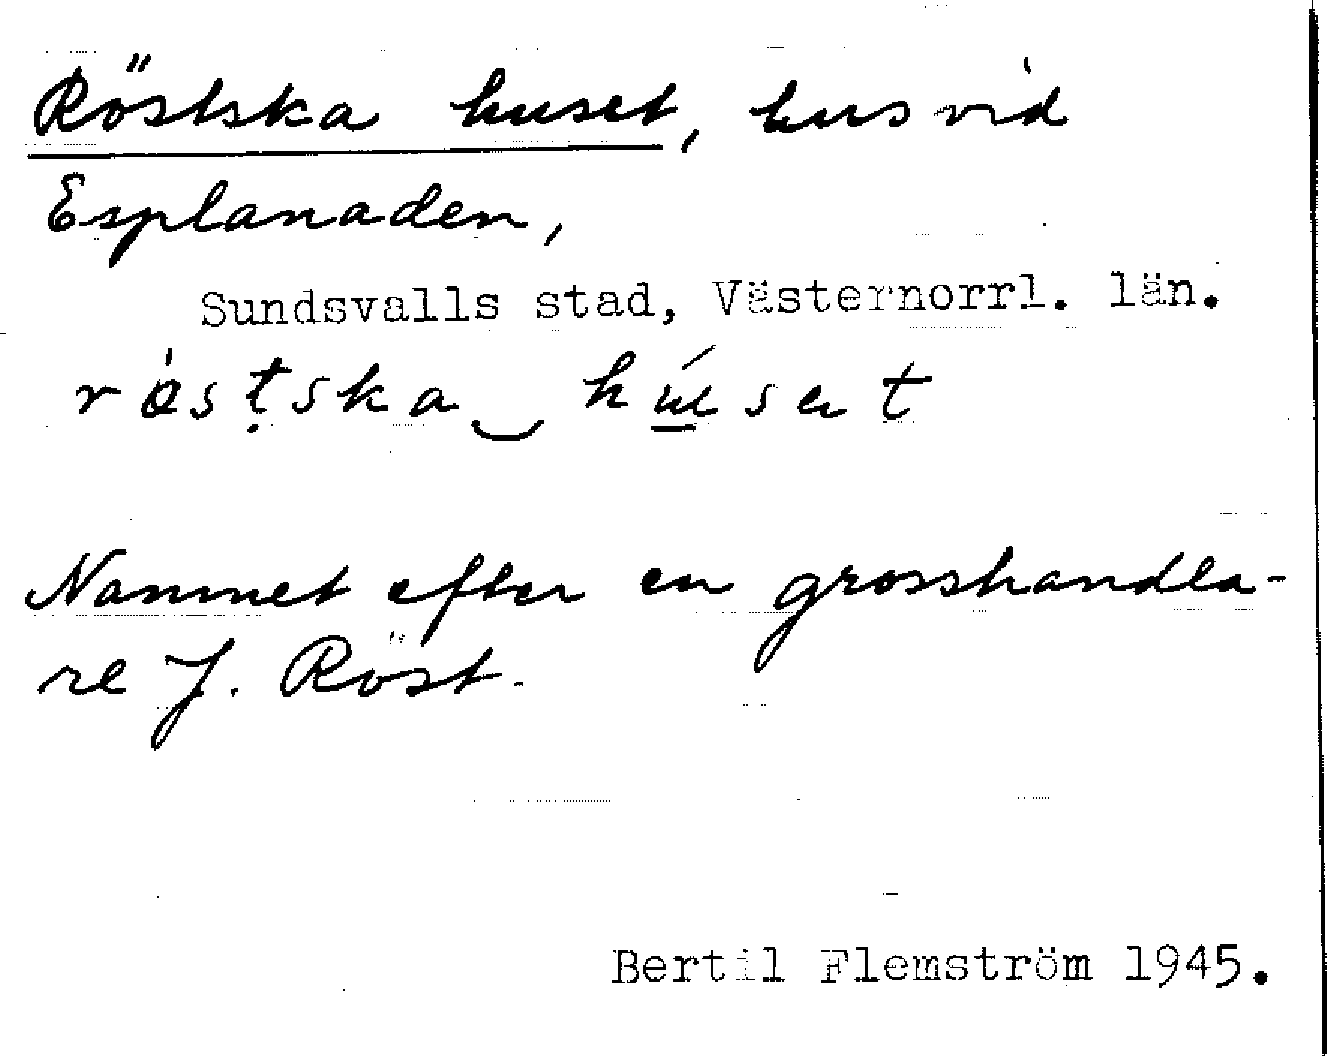 Röstska huset, hus vid
Esplanaden,
Sundsvalls stad, Västernorrl. län.
Namnet efter en grosshandla-
re J. Röst.
Bertil Flemström 1945.